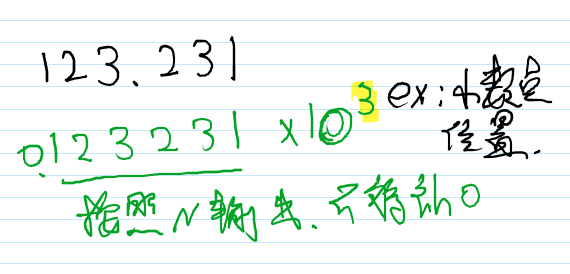 123.231
0.123231 x10³ ex:小数点
位置.
按照N输出.不够补0